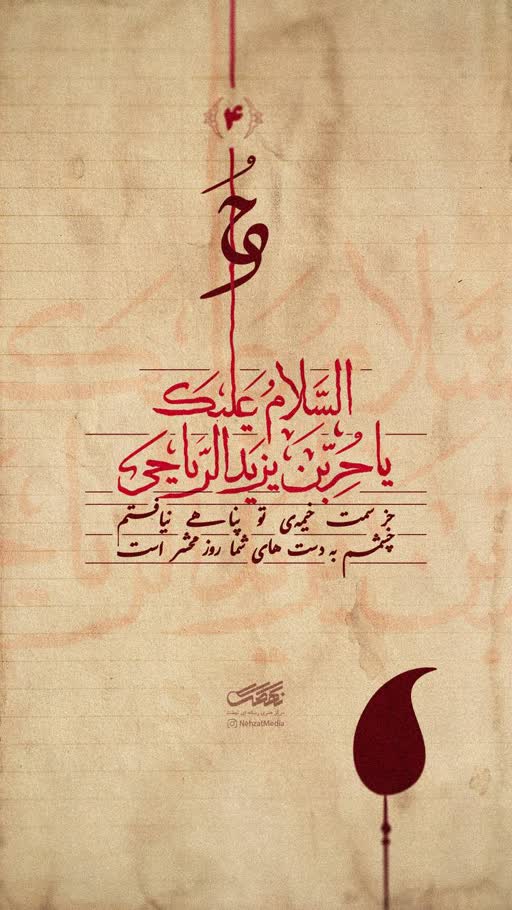 ۴
حُر
السَّلامُ عَلَیکَ
یا حُرِّبنَ یَزیدَ الرّیاحی
جز سمت خیمه‌ی تو پناهی نیافتم
چشمم به دست های شما روز محشر است
نهضت
مرکز هنری رسانه ای نهضت
NehzatMedia